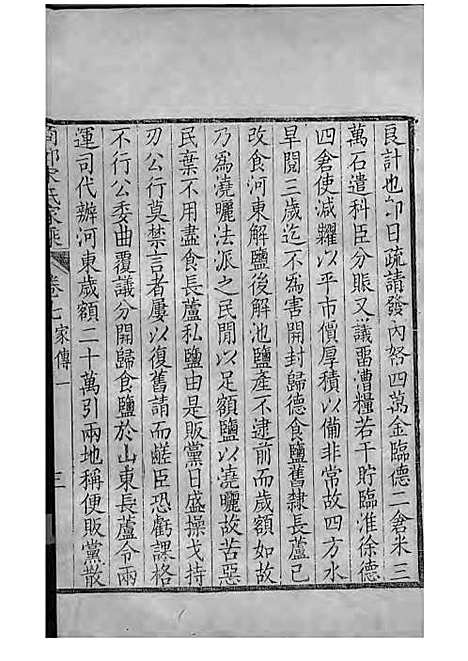 良計也卽日疏請發內帑四萬金臨德二倉米三
萬石遣科臣分賑又議畱漕糧若干貯臨淮徐德
四倉使減糶以平市價厚積以備非常故四方水
旱閱三歲迄不爲害開封歸德食鹽舊隸長蘆已
改食河東解鹽後解池鹽產不逮前而歲額如故
乃爲澆曬法派之民閒以足額鹽以澆曬故苦惡
民棄不用盡食長蘆私鹽由是販黨日盛操戈持
刃公行莫禁言者屢以復舊請而鹺臣恐虧課格
不行公委曲覆議分開歸食鹽於山東長蘆令兩
運司代辦河東歲額二十萬引兩地稱便販黨散
商邱宋氏家乘 卷七 家傳一 三